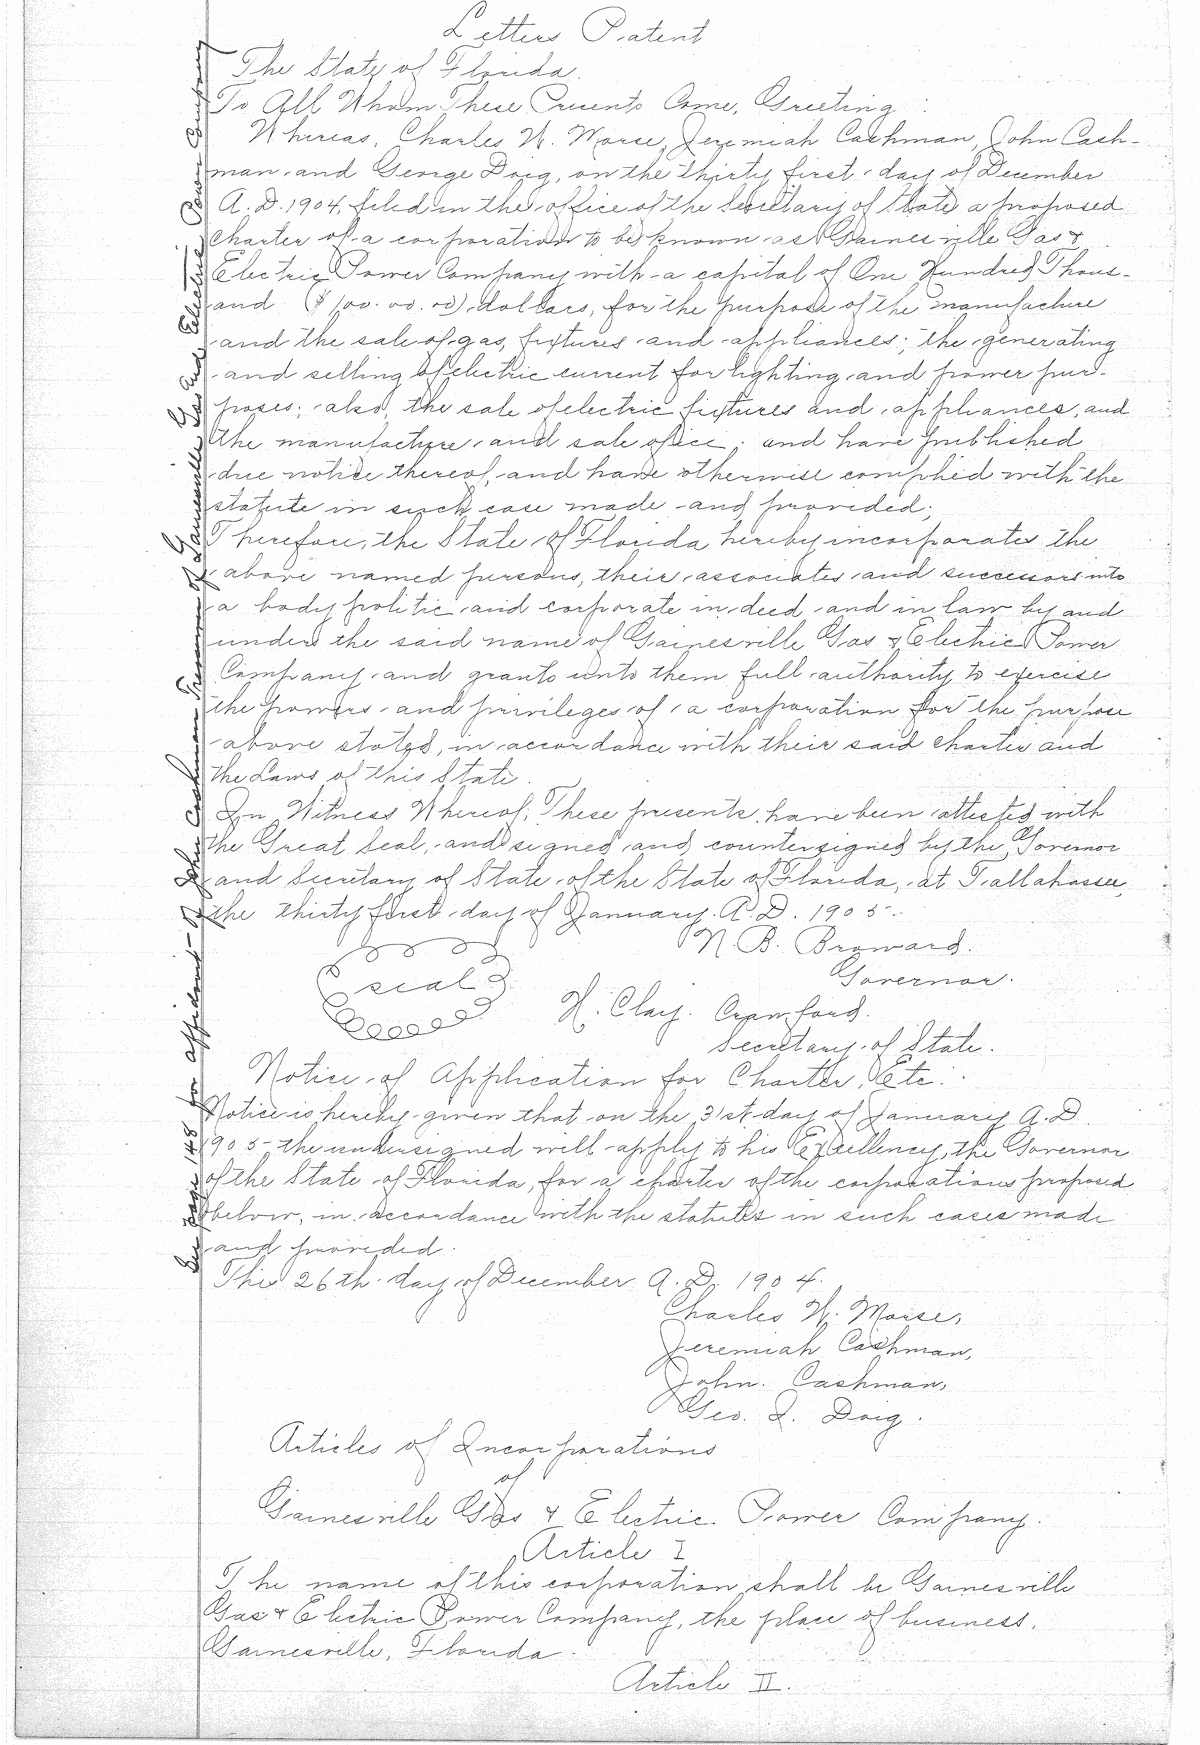 Letters Patent
The State of Florida.
To All Whom These Presents Come, Greeting:
Whereas, Charles W. Morse, Jeremiah Cashman, John Cash-
man and George Doig, on the thirty first day of December
A.D. 1904, filed in the office of the Secretary of State a proposed
charter of a corporation to be known as Gainesville Gas &
Electric Power Company with a capital of One Hundred Thous-
and ($100.00.00) dollars, for the purpose of the manufacture
and the sale of gas, fixtures and appliances; the generating
and selling of electric current for lighting and power pur-
poses; also, the sale of electric fixtures and appliances, and
the manufacture and sale of ice; and have published
due notice thereof, and have otherwise complied with the
statute in such case made and provided;
Therefore, the State of Florida hereby incorporates the
above named persons, their associates and successors into
a body politic and corporate in deed and in law by and
under the said name of Gainesville Gas & Electric Power
Company and grants unto them full authority to exercise
the powers and privileges of a corporation for the purpose
above stated, in accordance with their said charter and
the Laws of this State.
In Witness Whereof, These presents have been attested with
the Great Seal, and signed and countersigned by the Governor
and Secretary of State of the State of Florida, at Tallahassee,
the thirty first day of January A.D. 1905.
N. B. Broward.
Governor.
seal
H. Clay Crawford.
Secretary of State.
Notice of Application for Charter, Etc.
Notice is hereby given that on the 31st day of January A.D.
1905 the undersigned will apply to his Excellency, the Governor
of the State of Florida, for a charter of the corporations proposed
below, in accordance with the statutes in such cases made
and provided.
This 26th day of December A.D. 1904.
Charles W. Morse,
Jeremiah Cashman,
John Cashman,
Geo. J. Doig.
Articles of Incorporations
of
Gainesville Gas & Electric Power Company.
Article I
The name of this corporation shall be Gainesville
Gas & Electric Power Company, the place of business,
Gainesville, Florida.
Article II.
See page 148 for affidavit of John Cashman Treasurer of Gainesville Gas and Electric Power Company